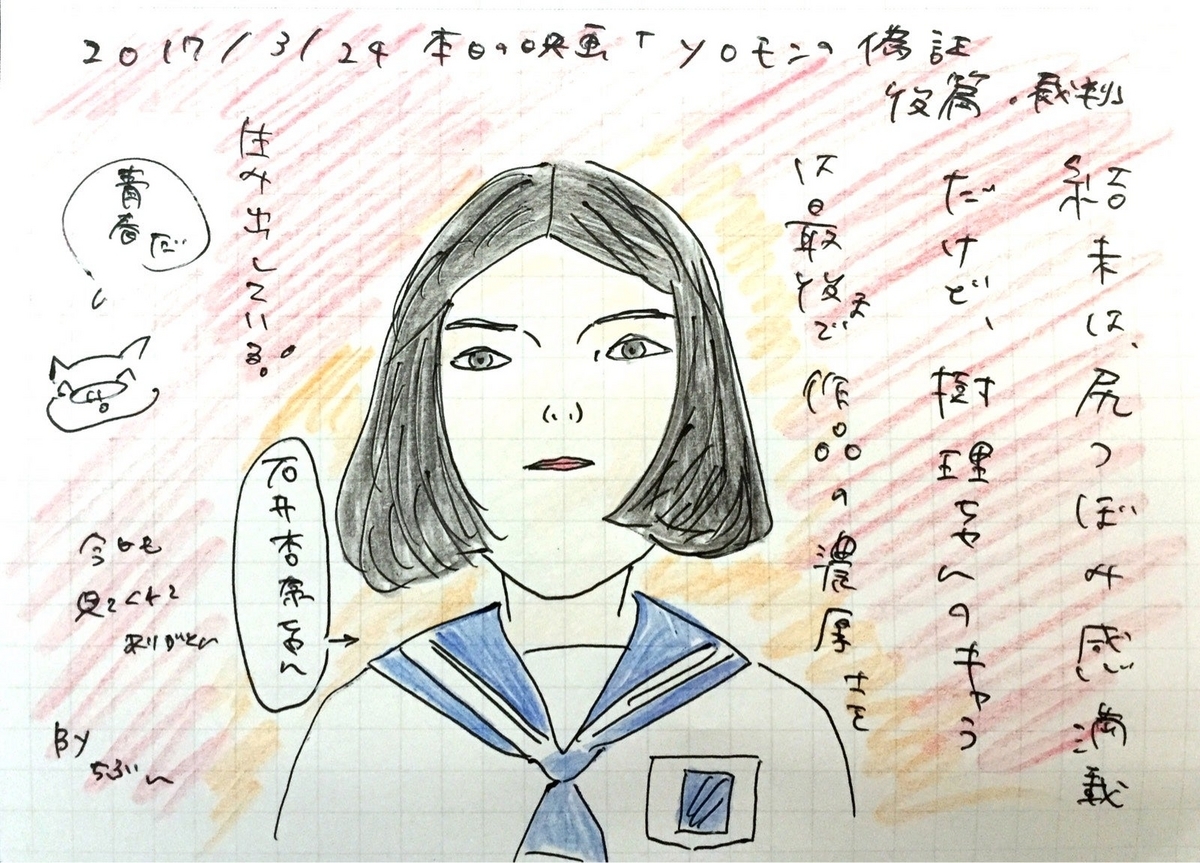 2017/3/24 本日の映画「ソロモンの偽証
後篇・裁判」
結末は、尻つぼみ感満載
だけど、樹理ちゃんのキャラ
は最後まで作品の濃厚さを
生み出している。
青春だ
石井杏奈ちゃん
今日も
見てくれて
ありがとい
By
ちぶー